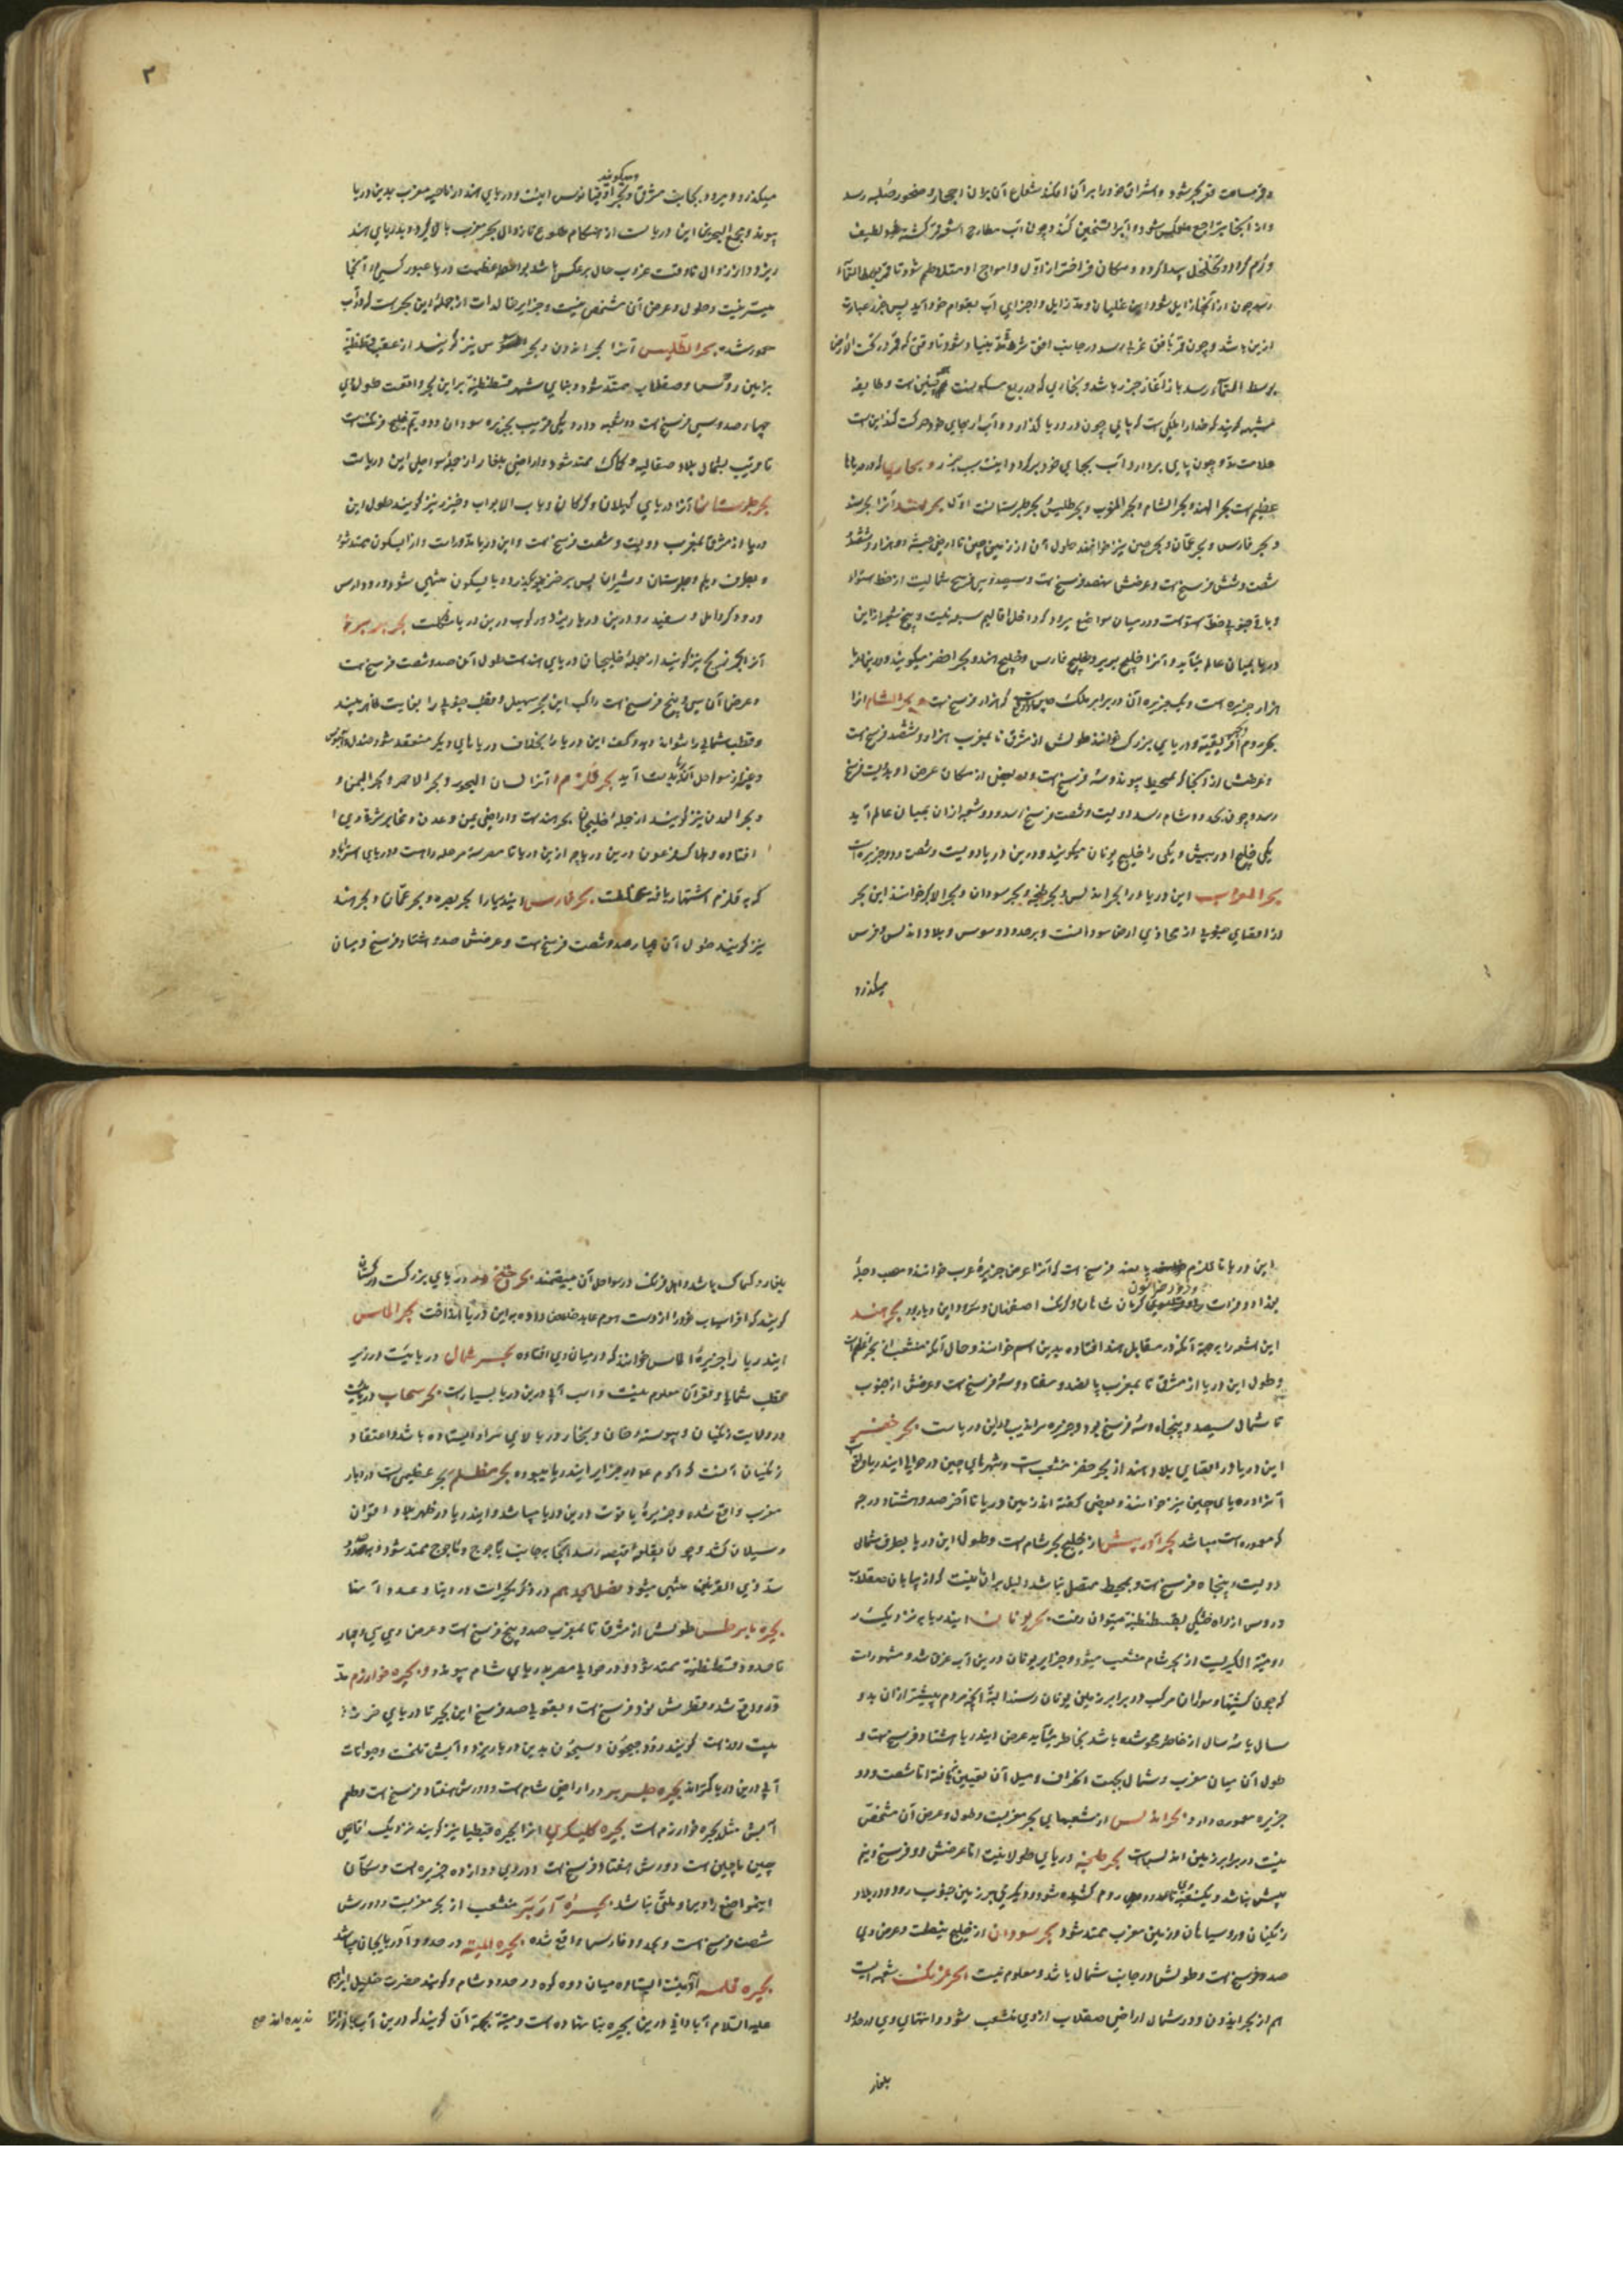 و قمر مسامت قعر بحر شود و اشراق خود را بر آن افکند شعاع آن بر آن احجار و صخور صلبه رسد
و از آنجا متراجع منعکس شود و آبرا تسخین کند و چون آب مطارح اشعه قمر گشته لطیف
و گرم گردد و تخلخل پیدا کرده و مکان فراختر از اول و امواج او متلاطم شود تا قمر بوسط السماء
رسد چون از آنجا زایل شود این غلیان و مد زایل و اجزای آب بقوام خود آید پس جزر عبارت
ازین باشد و چون قمر بافق غربی رسد در جانب افق شرقی مد بنیاد شود تا وقتی که قمر در تحت الارض
بوسط السماء رسد باز آغاز جزر باشد و بخاری که در ربع مسکونست چنین است و طایفه
مشبهه گویند که خدا را ملکی است که پای چون در دریا گذارد و آب از جای خود حرکت کند این است
علامت مد و چون پای بردارد آب بجای خود برگردد و اینست سبب جزر و بحاری که در دریاها
عظیم است بحر الهند و بحر الشام و بحر المغرب و بحر طلیس و بحر طبرستانست اول بحر هند آنرا بحر سند
و بحر فارس و بحر عمان و بحر چین نیز خوانند طول آن از زمین چین تا ارض حبشه دو هزار و ششصد
شصت و شش فرسخ است و عرضش نهصد فرسخ است و سیصد و سی فرسخ شمالیست از خط استواء
و باقی جنوبی خط استواست و در میان مواضع برود که داخل اقالیم سبعه نیست و پنج شعبه از این
دریا بمیان عالم میآید و آنرا خلیج بربر و خلیج فارس و خلیج هند و بحر اخضر میگویند و درین دریا
هزار جزیره است و یک جزیره آن در برابر ملک چین که هزار فرسخ است و بحر الشام آنرا
بحر روم و افریقیه و دریای بزرگ خوانند طولش از مشرق تا بمغرب هزار و ششصد فرسخ است
و عرضش از آنجا که بمحیط پیوند و سه فرسخ است و در بعضی از مکان عرض او دویست فرسخ
رسد و چون بحدود شام رسد دویست و شصت فرسخ رسد و دو شعبه از آن بمیان عالم آید
یکی خلیج ادریس و یکی را خلیج یونان میگویند و درین دریا دویست و شصت و دو جزیره است
بحر المغرب این دریا را بحر اندلس و بحر طنجه و بحر سودان و بحر الاکبر خوانند این بحر
از اقصای جنوب از محاذی ارض سودانست و بر حدود سوس و بلاد اندلس و فرس
میگذرد
۳
و میگویند
میگذرد و میرود بجانب مشرق و بحر اوقیانوس اینست و دریای هند از ناحیه مغرب بدین دریا
پیوندد و مجمع البحرین این دریاست از هنگام طلوع تا زوال بحر مغرب بالا گیرد و بدریای هند
ریزد و از زوال تا وقت غروب حال برعکس باشد بواسطه عظمت دریا عبور کسی از آنجا
میسر نیست و طول و عرض آن مشخص نیست و جزایر خالدات از جمله این بحر است که در آب
معمور شده بحر الطلیس آنرا بحر اندون و بحر نیز گویند از عقب قسطنطنیه
بزمین روس و صقلاب ممتد شود و بنای شهر قسطنطنیه بر این بحر واقعست طول وی
چهارصد و سی فرسخ است دو شعبه دارد یکی قریب بجزیره سودان و دویم خلیج فرنک است
تا قریب بشمال بلاد صقالیه و کماک ممتد شود و اراضی بلغار از جمله سواحل این دریاست
بحر طبرستان آنرا دریای گیلان و گرگان و باب الابواب و خزر نیز گویند طول این
دریا از مشرق بمغرب دویست و شصت فرسخ است و این دریا مدورات و از آبسکون ممتد شود
و بطرف دیلم و طبرستان و شیران پس بر خزر بگذرد و بآبسکون منتهی شود و رود ارس
و رود کر و آمل و سفید رود درین دریا ریزد و رکوب درین دریا مشکلست بحر بربره
آنرا بحر زنج نیز گویند از جمله خلیجان دریای هند است طول آن صد و شصت فرسخ است
و عرض آن سی و پنج فرسخ است راکب این بحر سهیل و قطب جنوبی را بغایت ظاهر بیند
و قطب شمالی را نتواند دید و کف این دریا بخلاف دریاهای دیگر منعقد شود صندل و آبنوس
و عنبر از سواحل آن دریا بدست آید بحر قلزم آنرا لسان البحر و بحر الاحمر و بحر الیمن و
و بحر العدن نیز گویند از جمله خلیجهای بحر هند است و اراضی یمن و عدن و بنابر شرقی وی
افتاده و هلاک فرعون درین دریا چه ازین دریا تا مصر سه مرحله راست و دریای
که به قلزم اشتهار یافته بحر فارس ایندریا را بحر بصره و بحر عمان و بحر هند
نیز گویند طول آن چهارصد و شصت فرسخ است و عرضش صد و هشتاد فرسخ و میان
این دریا تا قلزم پانصد فرسخ است که آنرا عرض جزیره عرب خوانند و مصب دجله
بغداد و فرات کرمان اصفهان و این دریا بود بحر سند
این شعبه را بجهت آنکه در مقابل سند افتاده بدین اسم خوانند و حال آنکه منشعب از بحر اعظم است
و طول این دریا از مشرق تا بمغرب پانصد و هفتاد و سه فرسخ است و عرضش از جنوب
تا شمال سیصد و پنجاه و سه فرسخ بود و جزیره سراندیب در این دریاست بحر خضر
این دریا در اقصای بلاد هند از بحر اخضر منشعب است و شهرهای چین در حوالی ایندریا واقع
آنرا دریای چین نیز خوانند و بعضی گفته اند زمین دریا تا آخر صد و هشتاد درجه
که معموره است میباشد بحر آورپش از خلیج بحر شام است و طول این دریا بطرف شمال
دویست و پنجاه فرسخ است و بمحیط متصل نباشد دلیل بر آن آنست که از پایان صقلاب
و روس از راه خشکی بقسطنطنیه میتوان رفت بحر یونان ایندریا به نزدیک
رومیة الکبریست از بحر شام منشعب میشود و جزایر یونان درین آب غرق شد و مشهورات
که چون کشتیها و سواران مرکب در برابر زمین یونان رسند البته آنچه مردم پیشتر از آن بدو
سال یا سه سال از خاطر محو شده باشد بخاطر میآید عرض ایندریا هشتاد فرسخ است و
طول آن میان مغرب و شمال بجهت انحراف و میل آن تعیین نیافته اما شصت و دو
جزیره معموره دارد بحر اندلس از شعبهای بحر مغربست و طول و عرض آن مشخص
نیست در برابر زمین اندلس است بحر طنجه دریای طولانیست اما عرضش دو فرسخ و نیم
بیش نباشد و یکشعبه تا حدود روم کشیده شود و دیگری بر زمین جنوب رود و در بلاد
زنگیان و روسیاهان و زمین مغرب ممتد شود بحر سودان از خلیج و عرض وی
صد فرسخ است و طولش در جانب شمال باشد و معلوم نیست بحر فرنک شعبه ایست
هم از بحر اندون و در شمال اراضی صقلاب از وی منشعب شود و انتهای وی در حدود
بلغار
بلغار و کماک باشد و اهل فرنک در سواحل آن میباشند بحر خلخ دریای بزرگست در ترکستان
گویند که افراسیاب خود را از دست هوم عابد خلاص داده به این دریا انداخت بحر الماس
ایندریا را جزیره الماس خوانند که در میان وی افتاده بحر شمال دریائیست در زیر
قطب شمالی و قعر آن معلوم نیست و اسب آبی درین دریا بسیار است بحر سحاب دریائیست
در ولایت زنگیان و پیوسته دخان و بخار در بالای سر او ایستاده باشد و اعتقاد
زنگیان آنست که آدم علیه در جزایر ایندریا میبوده بحر مظلم بحر عظیمی است در دیار
مغرب واقع شده و جزیره یاقوت درین دریا میباشد و ایندریا در ظهر بلاد
و سیلان کشد و چون بقلعه قیصر رسد از آنجا بجانب یاجوج و ماجوج ممتد شود
سد ذی القرنین منتهی میشود فصل دویم در ذکر بحیرات در دنیا و عدد آنها
بحیره بابرطس طولش از مشرق تا بمغرب صد و پنج فرسخ است و عرض وی سی و چهار
تا حدود قسطنطنیه ممتد شود و در حوالی مصر بدریای شام پیوندد بحیره خوارزم مد
قطرش نود فرسخ است و بقولی صد فرسخ این بحیر تا دریای خزر
بیست روزه است گویند رود جیحون و سیحون بدین دریا ریزد و آبش تلخست و حیوانات
آبی درین دریا کم اند بحیره طبریه در اراضی شام است و دورش هفتاد فرسخ است و طعم
آبش مثل بحیره خوارزم است بحیره کلیسکری آنرا بحیره قبطیا نیز گویند نزدیک اقاصی
چین ماچین است دورش هفتاد فرسخ است و در وی دوازده جزیره است و سکان
اینمواضع را دین و ملتی نباشد بحیره آزبر منشعب از بحر مغربست و دورش
شصت فرسخ است و بحدود فارس واقع شده بحیره المیته در حدود آذربایجان میباشد
بحیره قلمه آبیست ایستاده میان دو کوه در حدود شام و گویند حضرت خلیل ابراهیم
علیه السلام آبادانی درین بحیره بنا نهاده است و میته بجهت آن گویند که درین آب جانوری
ندیده اند صح